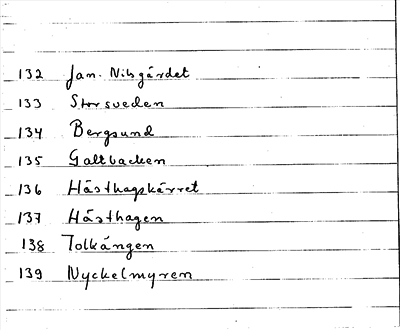 132 Jan. Nilsgärdet
133 Storsveden
134 Bergsund
135 Galtbacken
136 Hästhagskärret
137 Hästhagen
138 Tolkängen
139 Nyckelmyren